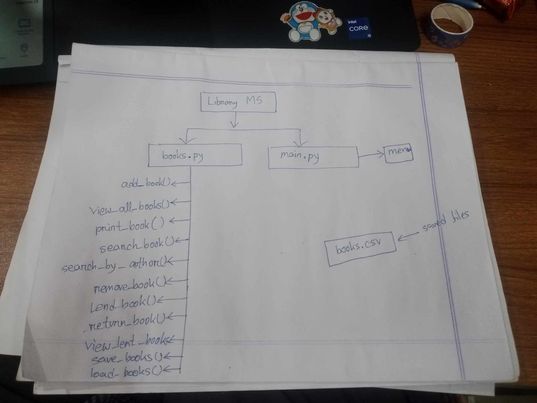 intel
CORE
Library MS
books.py
main.py
menu
add_book()
view_all_books()
print_book()
search_book()
search_by_author()
remove_book()
Lend_book()
return_book()
view_lent_books
save_books()
load_books()
books.csv
saved files